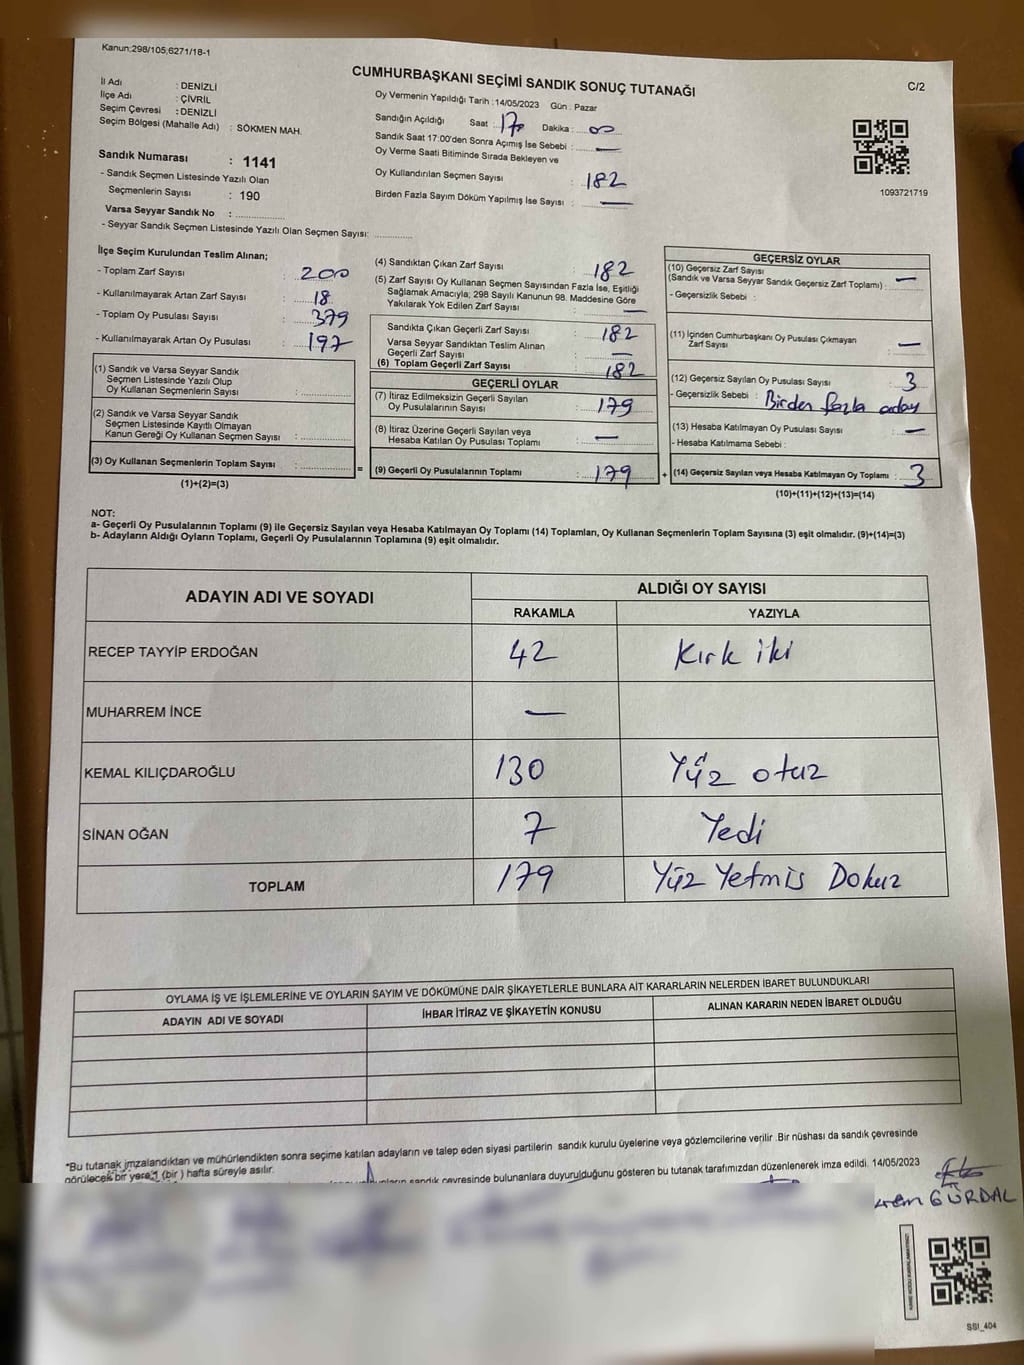 Kanun:298/105,6271/18-1
CUMHURBAŞKANI SEÇİMİ SANDIK SONUÇ TUTANAĞI
C/2
İl Adı : DENİZLİ
İlçe Adı : ÇİVRİL
Seçim Çevresi : DENİZLİ
Seçim Bölgesi (Mahalle Adı) : SÖKMEN MAH.
Sandık Numarası : 1141
- Sandık Seçmen Listesinde Yazılı Olan
Seçmenlerin Sayısı : 190
Varsa Seyyar Sandık No :
- Seyyar Sandık Seçmen Listesinde Yazılı Olan Seçmen Sayısı:
Oy Vermenin Yapıldığı Tarih :14/05/2023 Gün : Pazar
Sandığın Açıldığı Saat : 17 Dakika : 00
Sandık Saat 17:00'den Sonra Açımış İse Sebebi : —
Oy Verme Saati Bitiminde Sırada Bekleyen ve
Oy Kullandırılan Seçmen Sayısı : 182
Birden Fazla Sayım Döküm Yapılmış İse Sayısı : —
1093721719
İlçe Seçim Kurulundan Teslim Alınan;
- Toplam Zarf Sayısı : 200
- Kullanılmayarak Artan Zarf Sayısı : 18
- Toplam Oy Pusulası Sayısı : 379
- Kullanılmayarak Artan Oy Pusulası : 197
(1) Sandık ve Varsa Seyyar Sandık
Seçmen Listesinde Yazılı Olup
Oy Kullanan Seçmenlerin Sayısı :
(2) Sandık ve Varsa Seyyar Sandık
Seçmen Listesinde Kayıtlı Olmayan
Kanun Gereği Oy Kullanan Seçmen Sayısı :
(3) Oy Kullanan Seçmenlerin Toplam Sayısı : =
(1)+(2)=(3)
(4) Sandıktan Çıkan Zarf Sayısı : 182
(5) Zarf Sayısı Oy Kullanan Seçmen Sayısından Fazla İse, Eşitliği
Sağlamak Amacıyla; 298 Sayılı Kanunun 98. Maddesine Göre
Yakılarak Yok Edilen Zarf Sayısı : —
Sandıkta Çıkan Geçerli Zarf Sayısı : 182
Varsa Seyyar Sandıktan Teslim Alınan
Geçerli Zarf Sayısı : —
(6) Toplam Geçerli Zarf Sayısı : 182
GEÇERLİ OYLAR
(7) İtiraz Edilmeksizin Geçerli Sayılan
Oy Pusulalarının Sayısı : 179
(8) İtiraz Üzerine Geçerli Sayılan veya
Hesaba Katılan Oy Pusulası Toplamı : —
(9) Geçerli Oy Pusulalarının Toplamı : 179 +
GEÇERSİZ OYLAR
(10) Geçersiz Zarf Sayısı
(Sandık ve Varsa Seyyar Sandık Geçersiz Zarf Toplamı) : —
- Geçersizlik Sebebi :
(11) İçinden Cumhurbaşkanı Oy Pusulası Çıkmayan
Zarf Sayısı : —
(12) Geçersiz Sayılan Oy Pusulası Sayısı : 3
- Geçersizlik Sebebi : Birden fazla aday
(13) Hesaba Katılmayan Oy Pusulası Sayısı : —
- Hesaba Katılmama Sebebi :
(14) Geçersiz Sayılan veya Hesaba Katılmayan Oy Toplamı : 3
(10)+(11)+(12)+(13)=(14)
NOT:
a- Geçerli Oy Pusulalarının Toplamı (9) ile Geçersiz Sayılan veya Hesaba Katılmayan Oy Toplamı (14) Toplamları, Oy Kullanan Seçmenlerin Toplam Sayısına (3) eşit olmalıdır. (9)+(14)=(3)
b- Adayların Aldığı Oyların Toplamı, Geçerli Oy Pusulalarının Toplamına (9) eşit olmalıdır.
ADAYIN ADI VE SOYADI ALDIĞI OY SAYISI
RAKAMLA YAZIYLA
RECEP TAYYİP ERDOĞAN 42 Kırk iki
MUHARREM İNCE —
KEMAL KILIÇDAROĞLU 130 Yüz otuz
SİNAN OĞAN 7 Yedi
TOPLAM 179 Yüz Yetmis Dokuz
OYLAMA İŞ VE İŞLEMLERİNE VE OYLARIN SAYIM VE DÖKÜMÜNE DAİR ŞİKAYETLERLE BUNLARA AİT KARARLARIN NELERDEN İBARET BULUNDUKLARI
ADAYIN ADI VE SOYADI İHBAR İTİRAZ VE ŞİKAYETİN KONUSU ALINAN KARARIN NEDEN İBARET OLDUĞU
*Bu tutanak imzalandıktan ve mühürlendikten sonra seçime katılan adayların ve talep eden siyasi partilerin sandık kurulu üyelerine veya gözlemcilerine verilir .Bir nüshası da sandık çevresinde
görülecek bir yere 1 (bir ) hafta süreyle asılır.
sandık çevresinde bulunanlara duyurulduğunu gösteren bu tutanak tarafımızdan düzenlenerek imza edildi. 14/05/2023
GÜRDAL
SSI_404